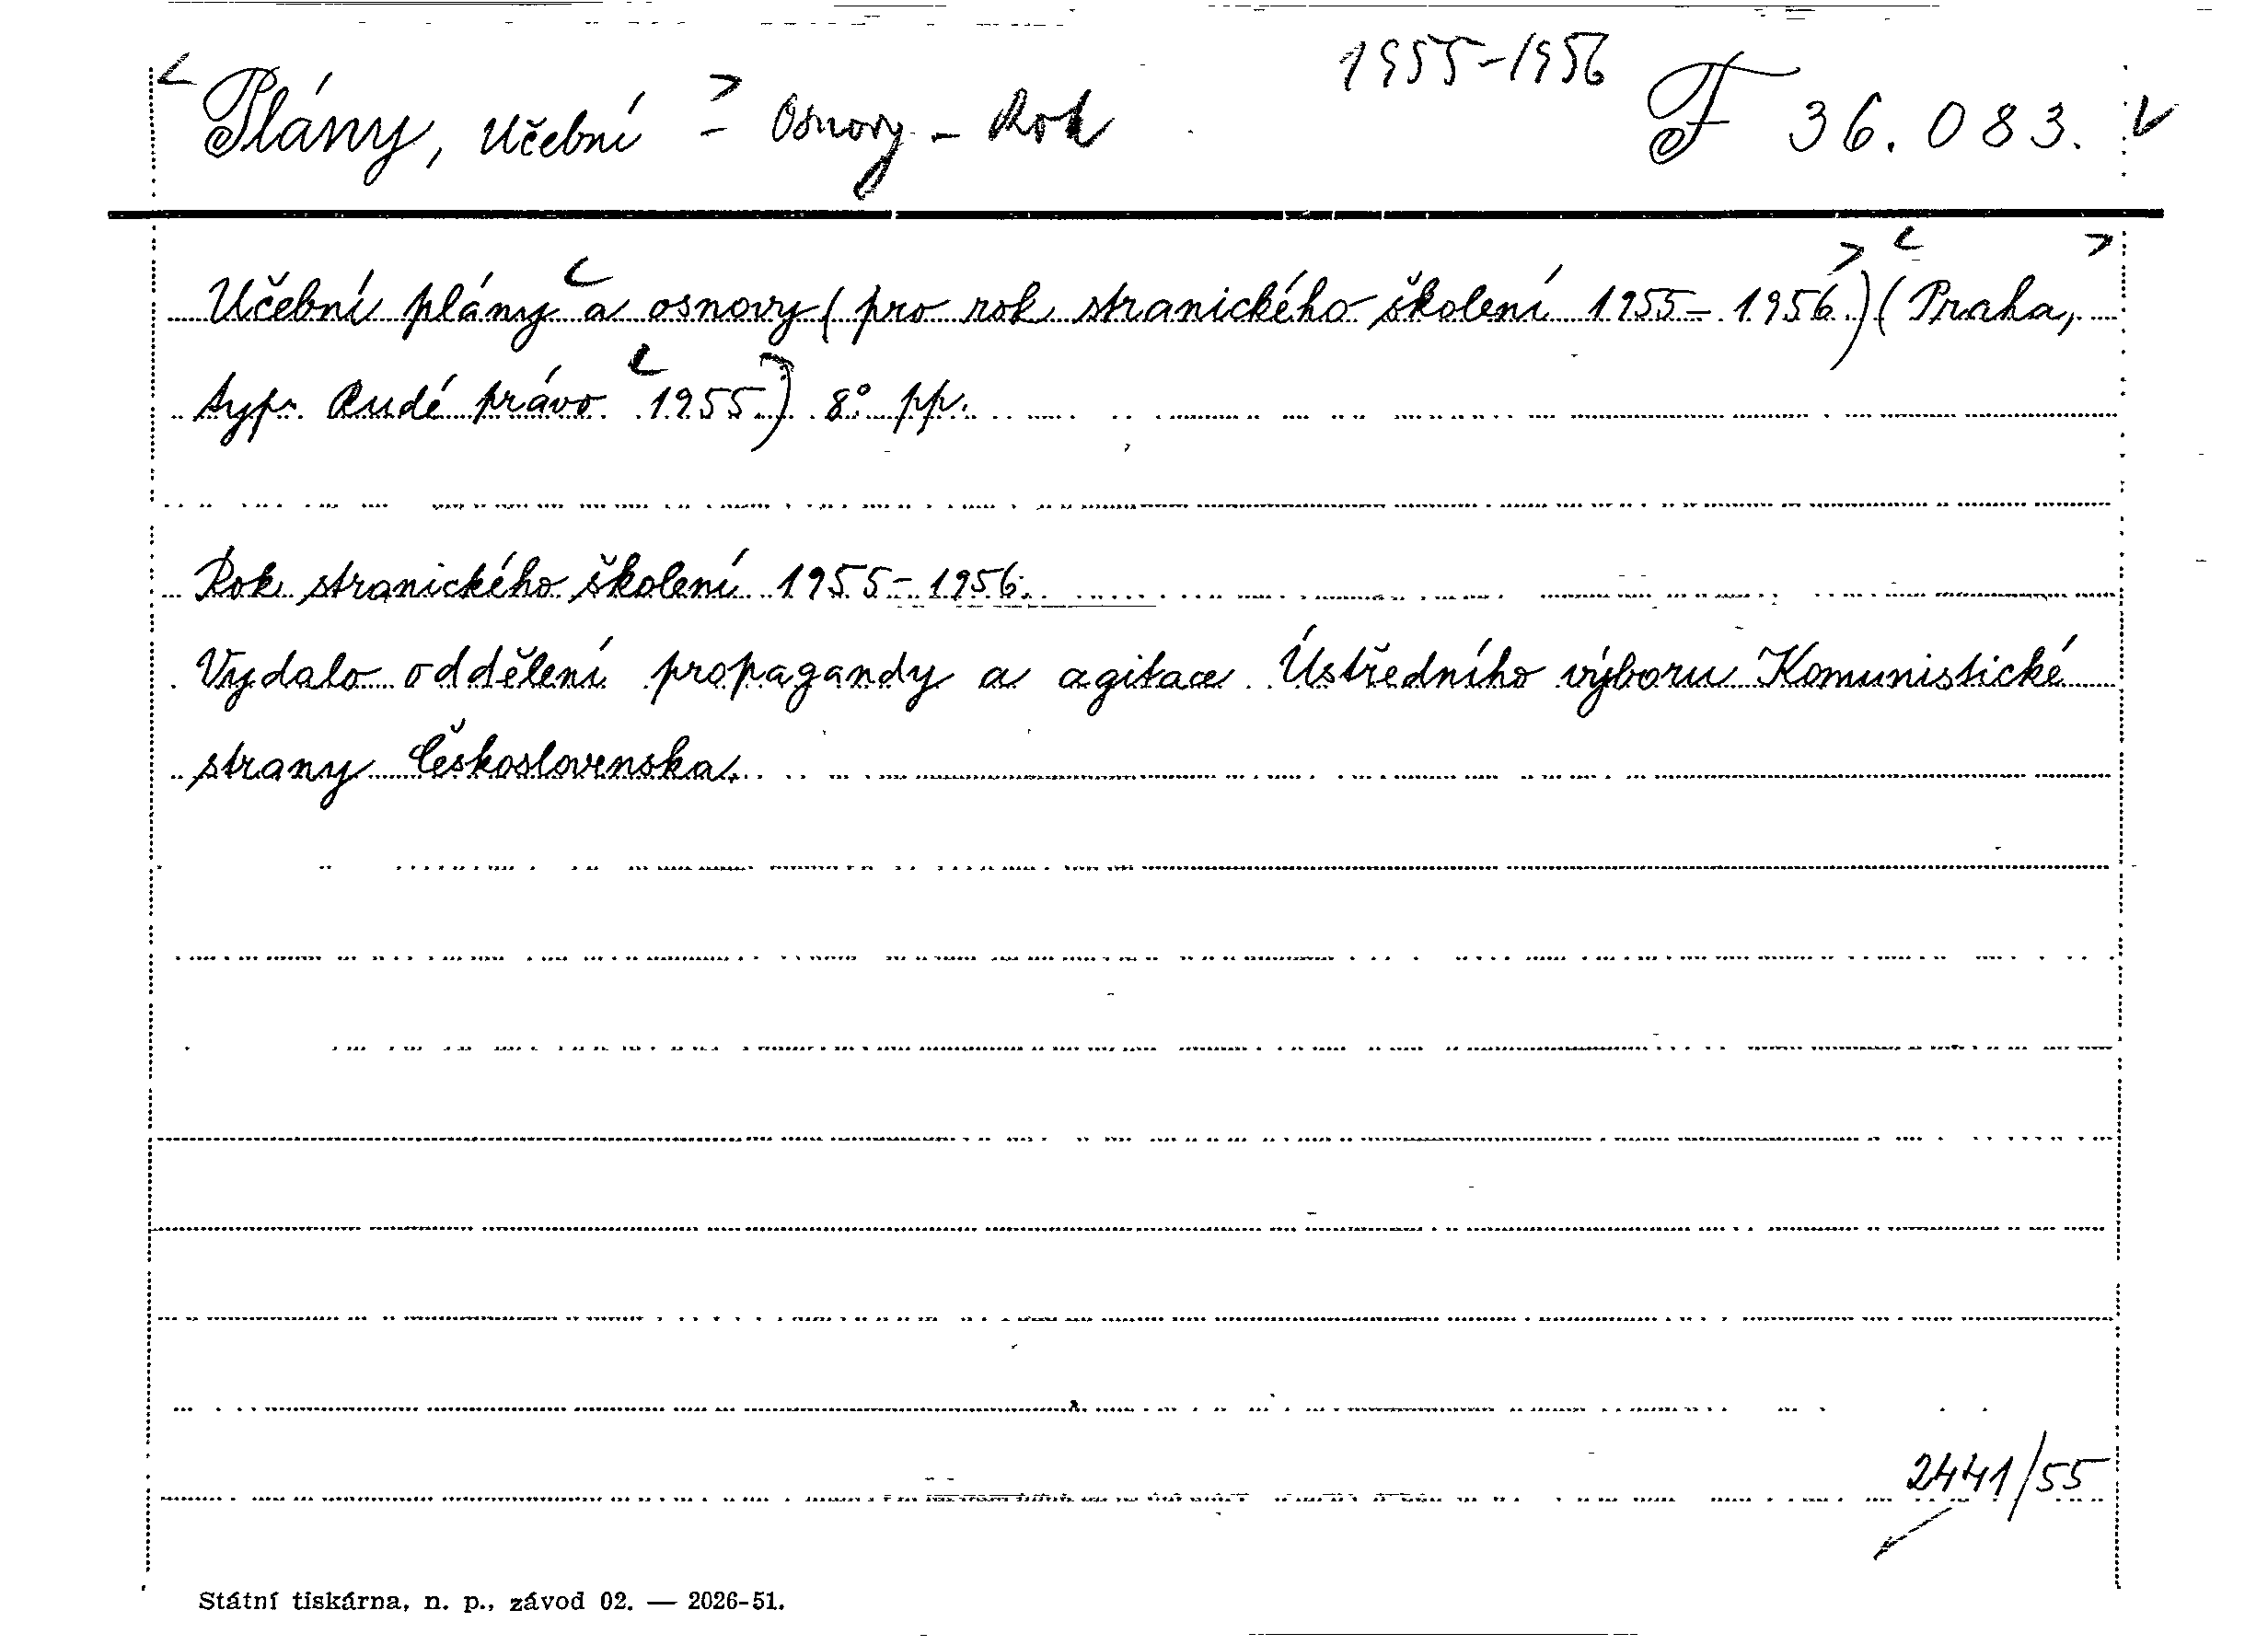 1955-1956
< Plány, Učební > - Osnovy - Rok F 36.083.
Učební plány a osnovy (pro rok stranického školení 1955-1956.) (Praha,
typ. Rudé právo 1955.) 8° pp.
Rok stranického školení 1955-1956.
Vydalo oddělení propagandy a agitace Ústředního výboru Komunistické
strany Československa.
2441/55
Státní tiskárna, n. p., závod 02. — 2026-51.